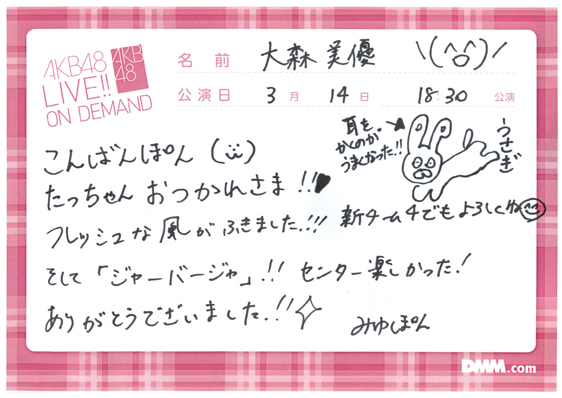 AKB48
LIVE!!
ON DEMAND
AKB
48
名前 大森美優 \(^o^)/
公演日 3月14日 18:30 公演
耳を
かくのが
うまくなった!!
うさぎ
こんばんぽん
たっちゃん おつかれさま!!!
フレッシュな風がふきました!!!
新チーム4でもよろしくね
そして「ジャーバージャ」!! センター楽しかった!
ありがとうございました!!
みゆぽん
DMM.com